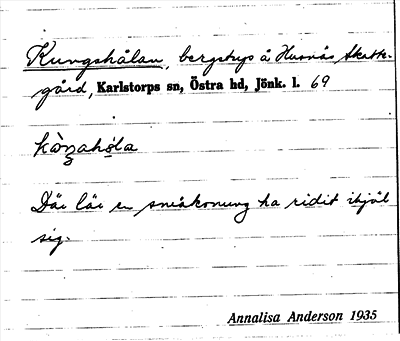 Kungshålan, bergstup å Husnäs Skatte-
gård, Karlstorps sn, Östra hd, Jönk. l. 69
Där lär en småkonung ha ridit ihjäl
sig.
Annalisa Anderson 1935